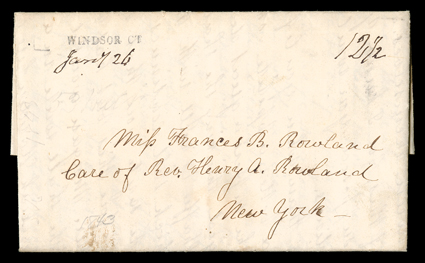 WINDSOR CT
Jany 26
12 1/2
Miss Frances B. Rowland
Care of Rev. Henry A. Rowland
New York